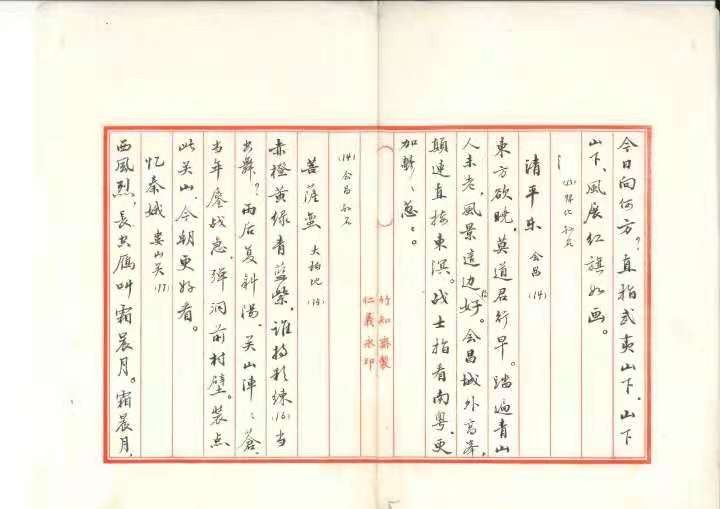 今日向何方？直指武夷山下。山下
山下，风展红旗如画。
清平乐 会昌(14)
東方欲晓，莫道君行早。踏遍青山
人未老，風景這边好。会昌城外高峰，
顛連直接東溟。战士指看南粤，更
加鬱鬱葱葱。
竹知斋製
仁義永印
菩萨蛮 大柏地(15)
赤橙黄绿青蓝紫，谁持彩练(16)当
空舞？雨后复斜阳，关山陣陣蒼。
当年鏖战急，弹洞前村壁。装点
此关山，今朝更好看。
忆秦娥 娄山关(17)
西風烈，長空雁叫霜晨月。霜晨月，